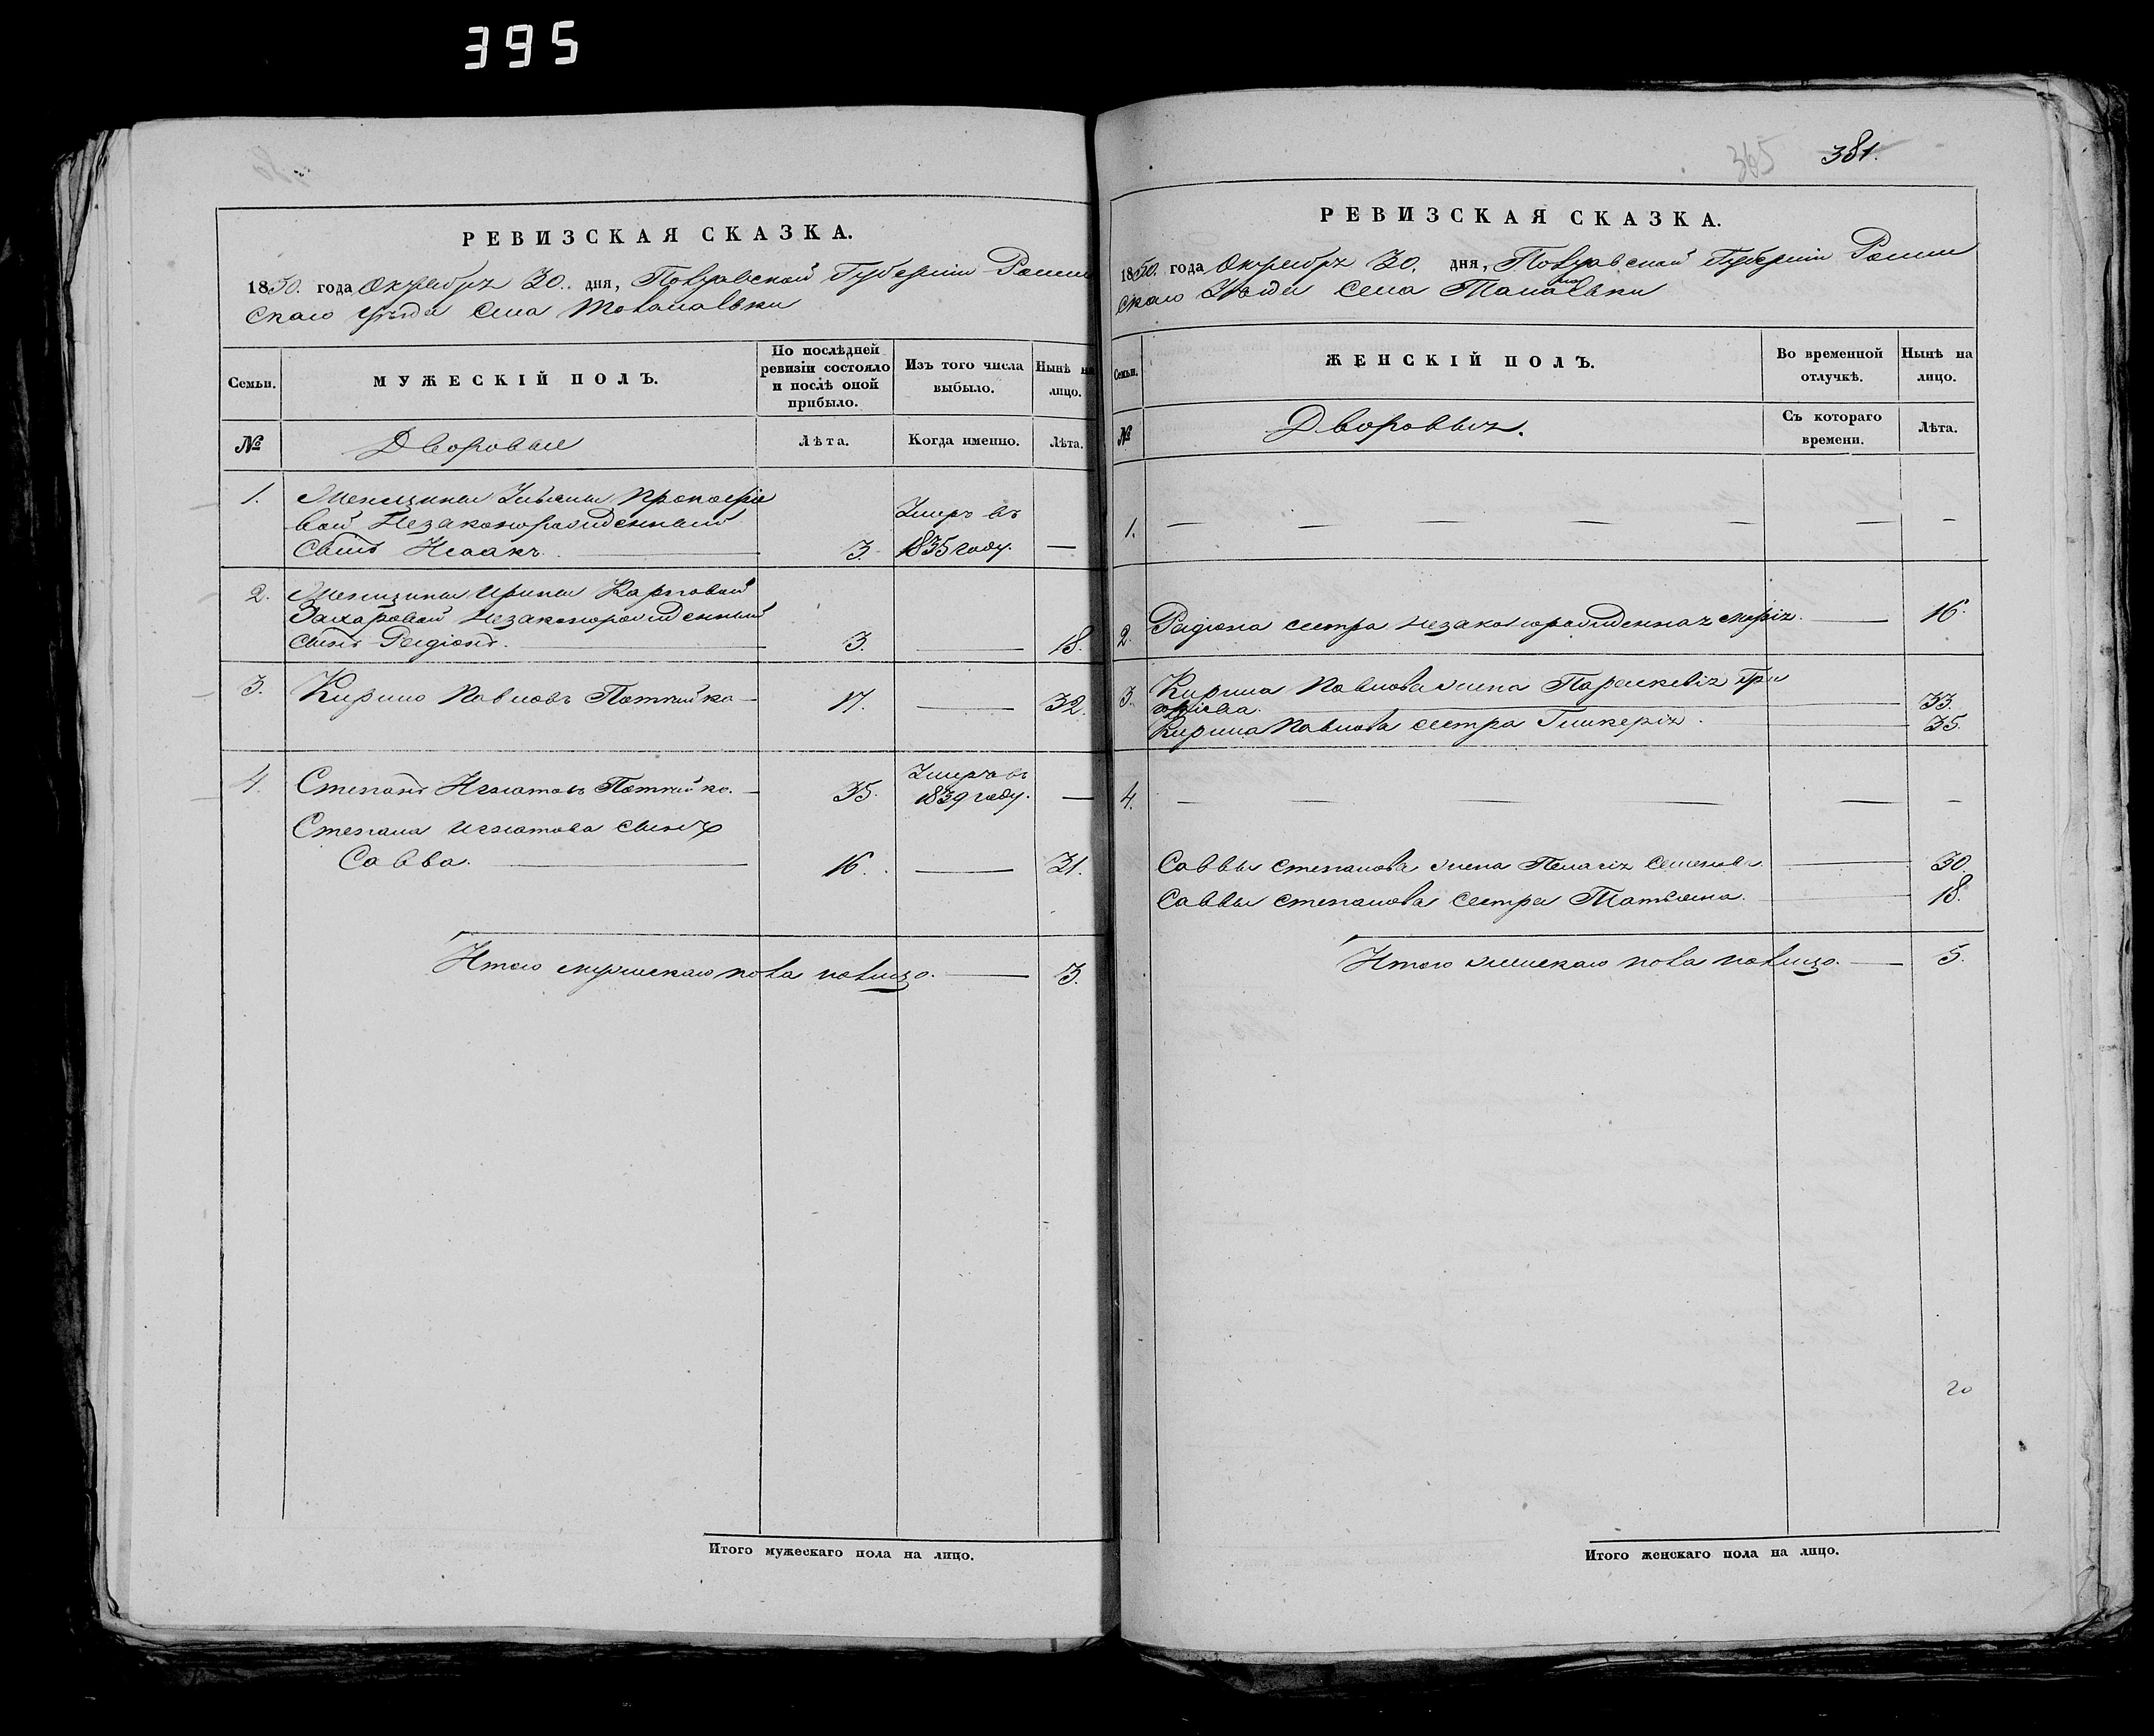 395
РЕВИЗСКАЯ СКАЗКА.
1850. года Октября 30. дня, Полтавской Губернiи Ромен
скаго Уѣзда Села
Семьи.
МУЖЕСКІЙ ПОЛЪ.
По послѣдней ревизіи состояло и послѣ оной прибыло.
Изъ того числа выбыло.
Нынѣ на лицо.
№
Дворовые
Лѣта.
Когда именно.
Лѣта.
1. Женщины Ульяны Прокофіе
вой Незаконорожденный
Умеръ въ
Сынъ Исаакъ. 3. 1835 году. —
2. Женщины Ирины Карповой
Захаровой Незаконорожденный
Сынъ Родіонъ. 3. — 18.
3. Кирило Павловъ 17. — 32.
Умеръ въ
4. Степанъ Игнатовъ 35. 1839 году. —
Степана Игнатова сынъ
Савва. 16. — 31.
Итого мужескаго пола налицо. — 3.
Итого мужескаго пола на лицо.
365 381.
РЕВИЗСКАЯ СКАЗКА.
1850. года Октября 30. дня, Полтавской Губерніи Ромен
скаго Уѣзда Села
Семьи.
ЖЕНСКІЙ ПОЛЪ.
Во временной отлучкѣ.
Нынѣ на лицо.
№
Дворовыхъ.
Съ котораго времени.
Лѣта.
1. — — — — — — —
2. Родіона сестра незаконорожденная Марія. — 16.
3. Кирила Павлова жена Параскевія Гри
горіева. — 33.
Кирила Павлова сестра Гликерія. 35.
4. — — — — — —
Саввы Степанова жена Пелагія Семенова — 30.
Саввы Степанова сестра Татьяна. — 18.
Итого женскаго пола налицо. — 5.
20
Итого женскаго пола на лицо.